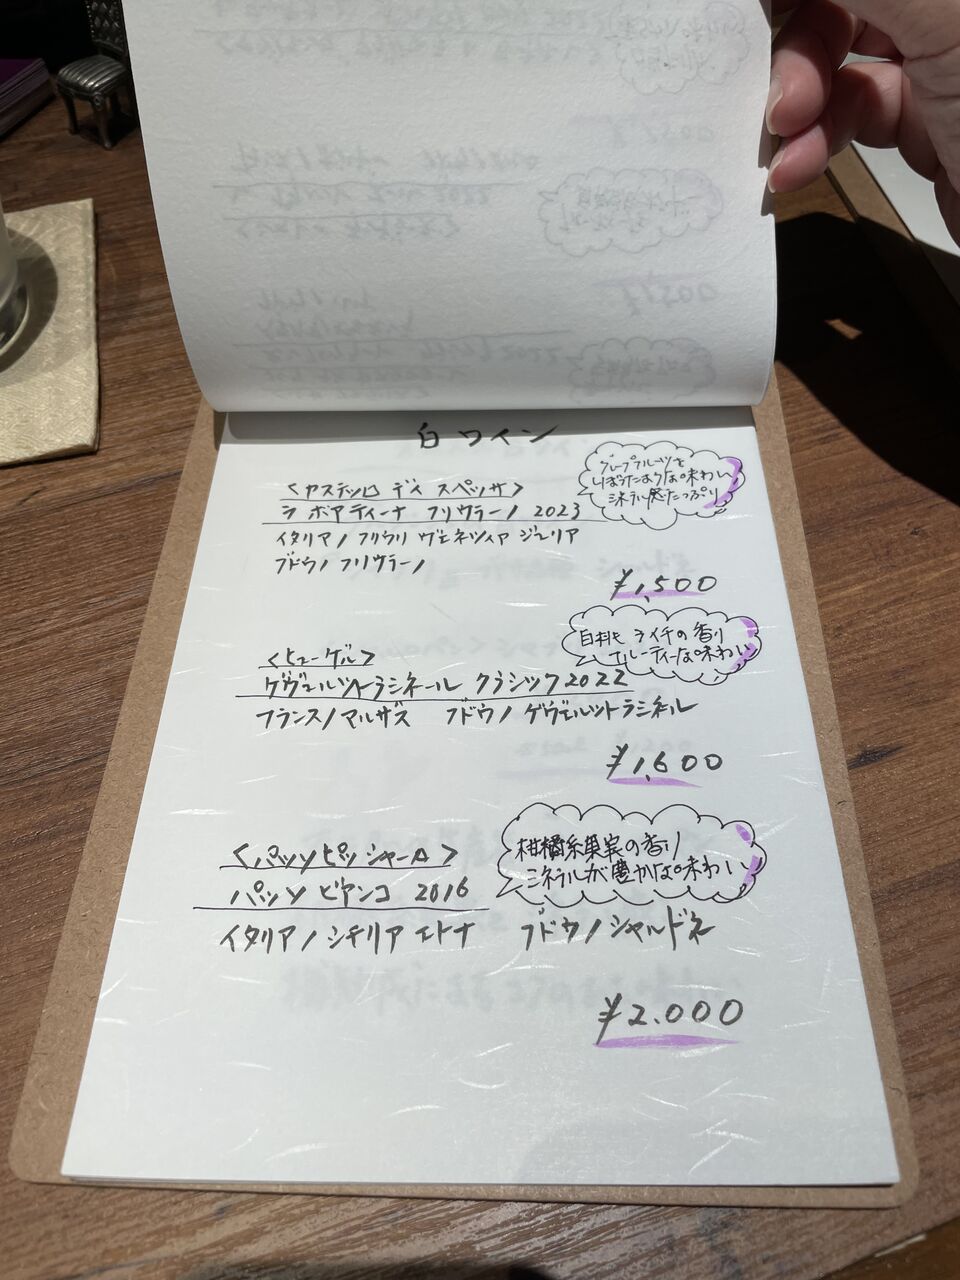 白ワイン
グレープフルーツを
しぼったような味わい
ミネラル感たっぷり
<カステッロ ディ スペッサ>
ラ ボアティーナ フリウラーノ 2023
イタリア/フリウリ ヴェネツィア ジュリア
ブドウ/フリウラーノ
¥1,500
白桃と ライチの香り
フルーティーな味わい
<ヒューゲル>
ゲヴェルツトラミネール クラシック2022
フランス/アルザス ブドウ/ゲヴェルツトラミネール
¥1,600
柑橘系果実の香り
ミネラルが豊かな味わい
<パッソピッシャーロ>
パッソ ビアンコ 2016
イタリア/シチリア エトナ ブドウ/シャルドネ
¥2.000